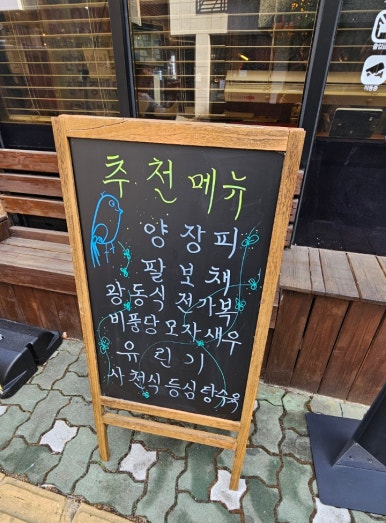 추천메뉴
양장피
팔보채
광동식 전가복
비풍당 모자새우
유린기
사천식 등심 탕수육